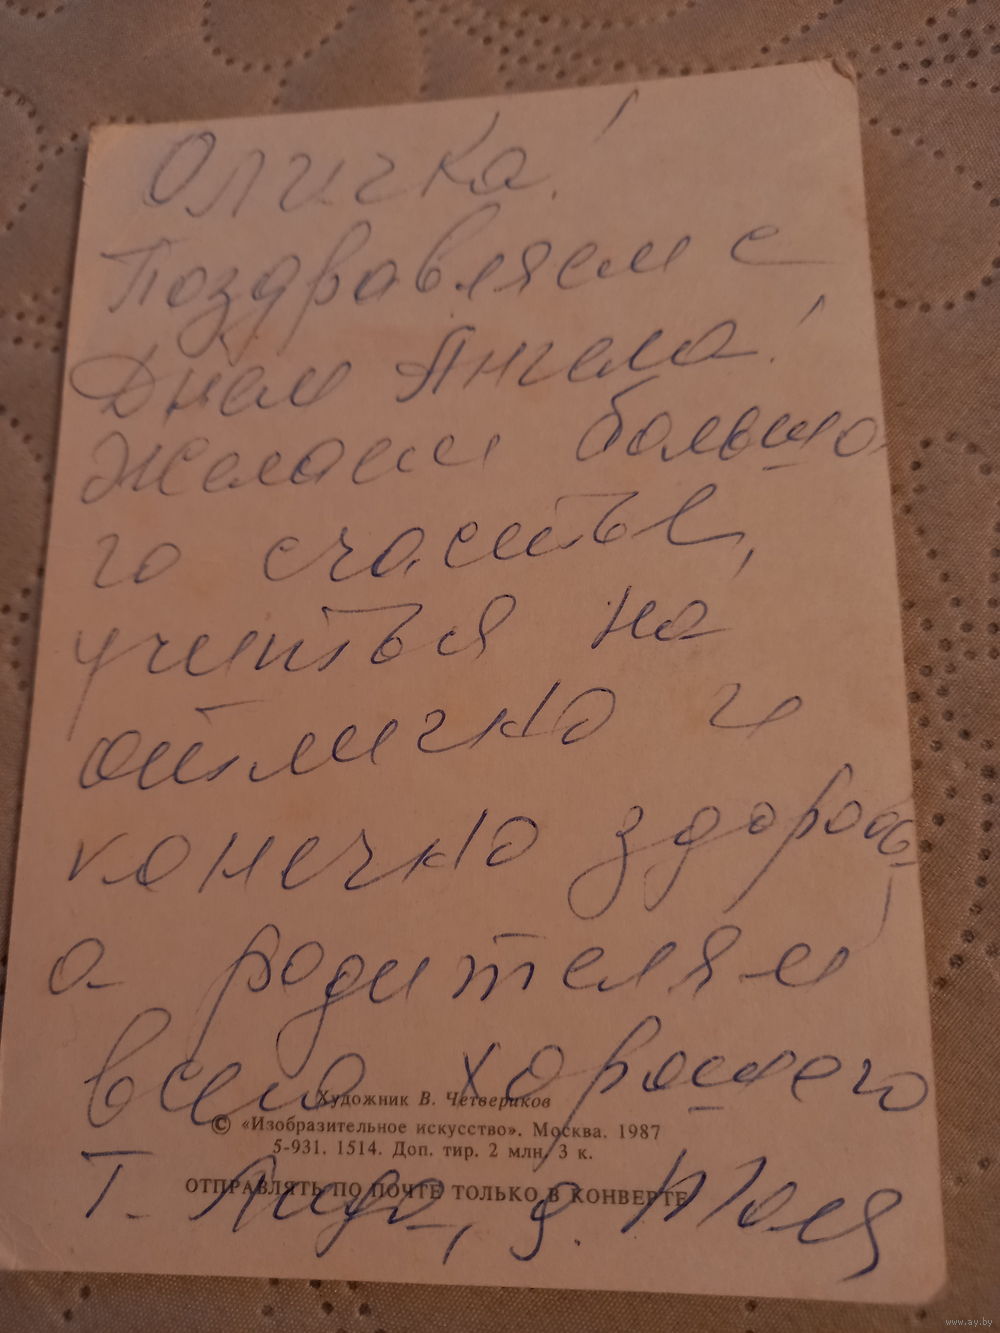 Оличка!
Поздравляем с
Днем Ангела!
Желаем большо
го счастья,
учиться на
отлично и
конечно здоровь
а родителям
всего хорошего
Художник В. Четвериков
© «Изобразительное искусство». Москва. 1987
5-931. 1514. Доп. тир. 2 млн. 3 к.
ОТПРАВЛЯТЬ ПО ПОЧТЕ ТОЛЬКО В КОНВЕРТЕ
Т. Лида, д. Толя
www.ay.by